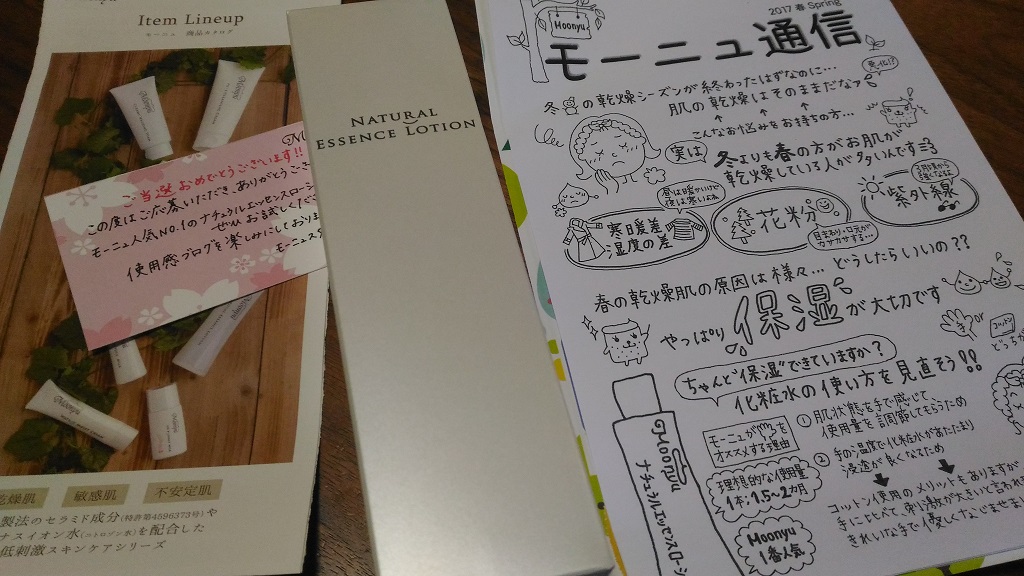 Item Lineup
モーニュ 商品カタログ
ご当選おめでとうございます!!
この度はご応募いただきありがとうござ
モーニュ人気NO.1のナチュラルエッセンスローシ
ぜひお試しくださ
使用感ブログを楽しみにしておりま
モーニュス
乾燥肌 敏感肌 不安定肌
製法のセラミド成分(特許第4596373号)や
ナスイオン水(ニトロゾン水)を配合した
低刺激スキンケアシリーズ
NATURAL
ESSENCE LOTION
2017 春 Spring
Moonyu
モーニュ通信
冬の乾燥シーズンが終わったはずなのに…
肌の乾燥はそのままだなァ
悪化!?
こんなお悩みをお持ちの方…
実は
冬よりも春の方がお肌が
乾燥している人が多いんです
春は暖かいけど
夜は寒いよね
寒暖差
湿度の差
花粉
目まわり・口元が
カサカサする…
紫外線
春の乾燥肌の原因は様々… どうしたらいいの??
やっぱり 保湿が大切です
ちゃんと“保湿”できていますか?
化粧水の使い方を見直そう!!
or
コットン
どっち
Moonyu
ナチュラルエッセンスローシ
モーニュが手を
オススメする理由
① 肌状態を手で感じて、
使用量を調節してもらうため
② 手の温度で化粧水があたたまり
浸透が良くなるため
理想的な使用量
1本:1.5~2カ月
Moonyu
1番人気
コットン使用のメリットもありますが
手に比べて刺激が大きいと言われ
きれいな手で優しくなじませま